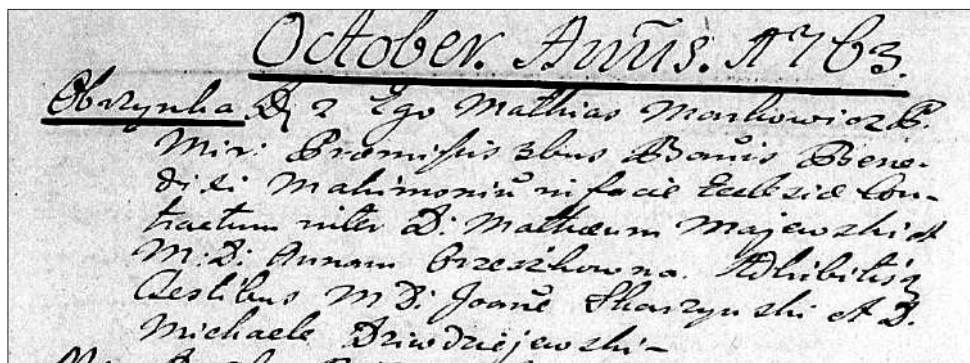 October. Annũs. A 1763.
Obrzynka D 2 Ego Mathias Markowicz P.
Mir: Præmissis 3bus Bañis Bene-
dixi Matrimoniũ in facie Ecclesiæ Con-
tractum inter D: Mathæum Majewski et
M: D: Annam Orzeszkowna Adhibitis
Testibus M D: Joañe Skarzynski et D.
Michaele Dziwdziejewski-